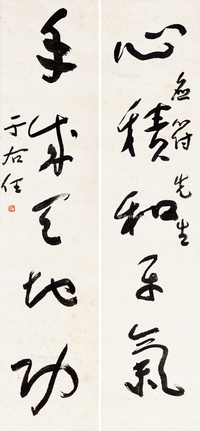 心積和平氣
益符先生
手成天地功
于右任